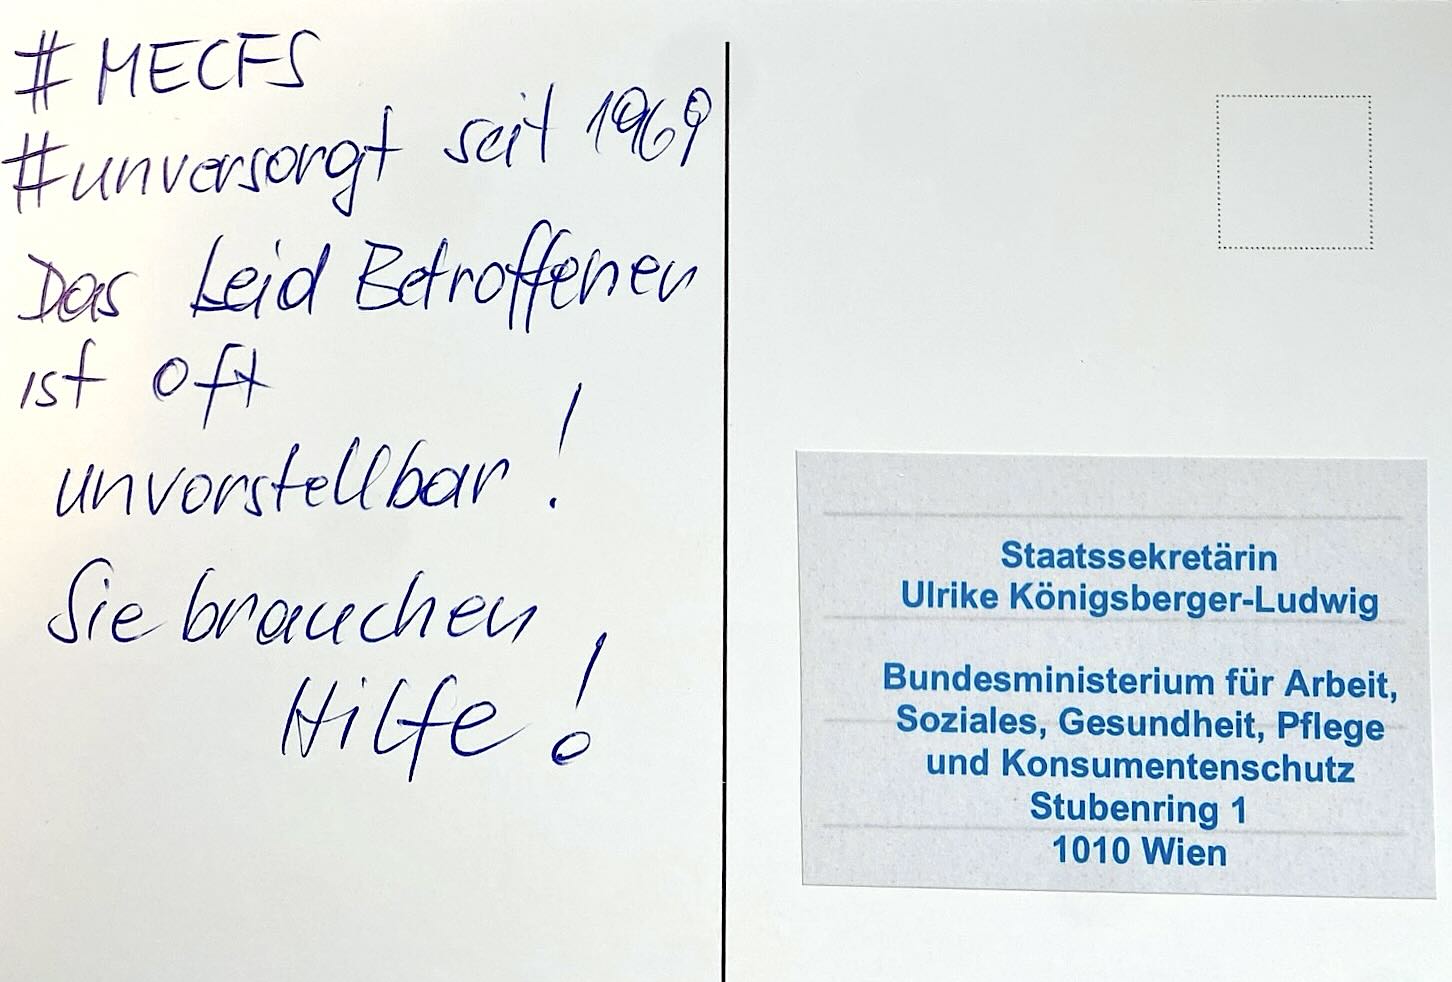 # MECFS
#unversorgt seit 1969
Das Leid Betroffener
ist oft
unvorstellbar!
Sie brauchen
Hilfe!
Staatssekretärin
Ulrike Königsberger-Ludwig
Bundesministerium für Arbeit,
Soziales, Gesundheit, Pflege
und Konsumentenschutz
Stubenring 1
1010 Wien